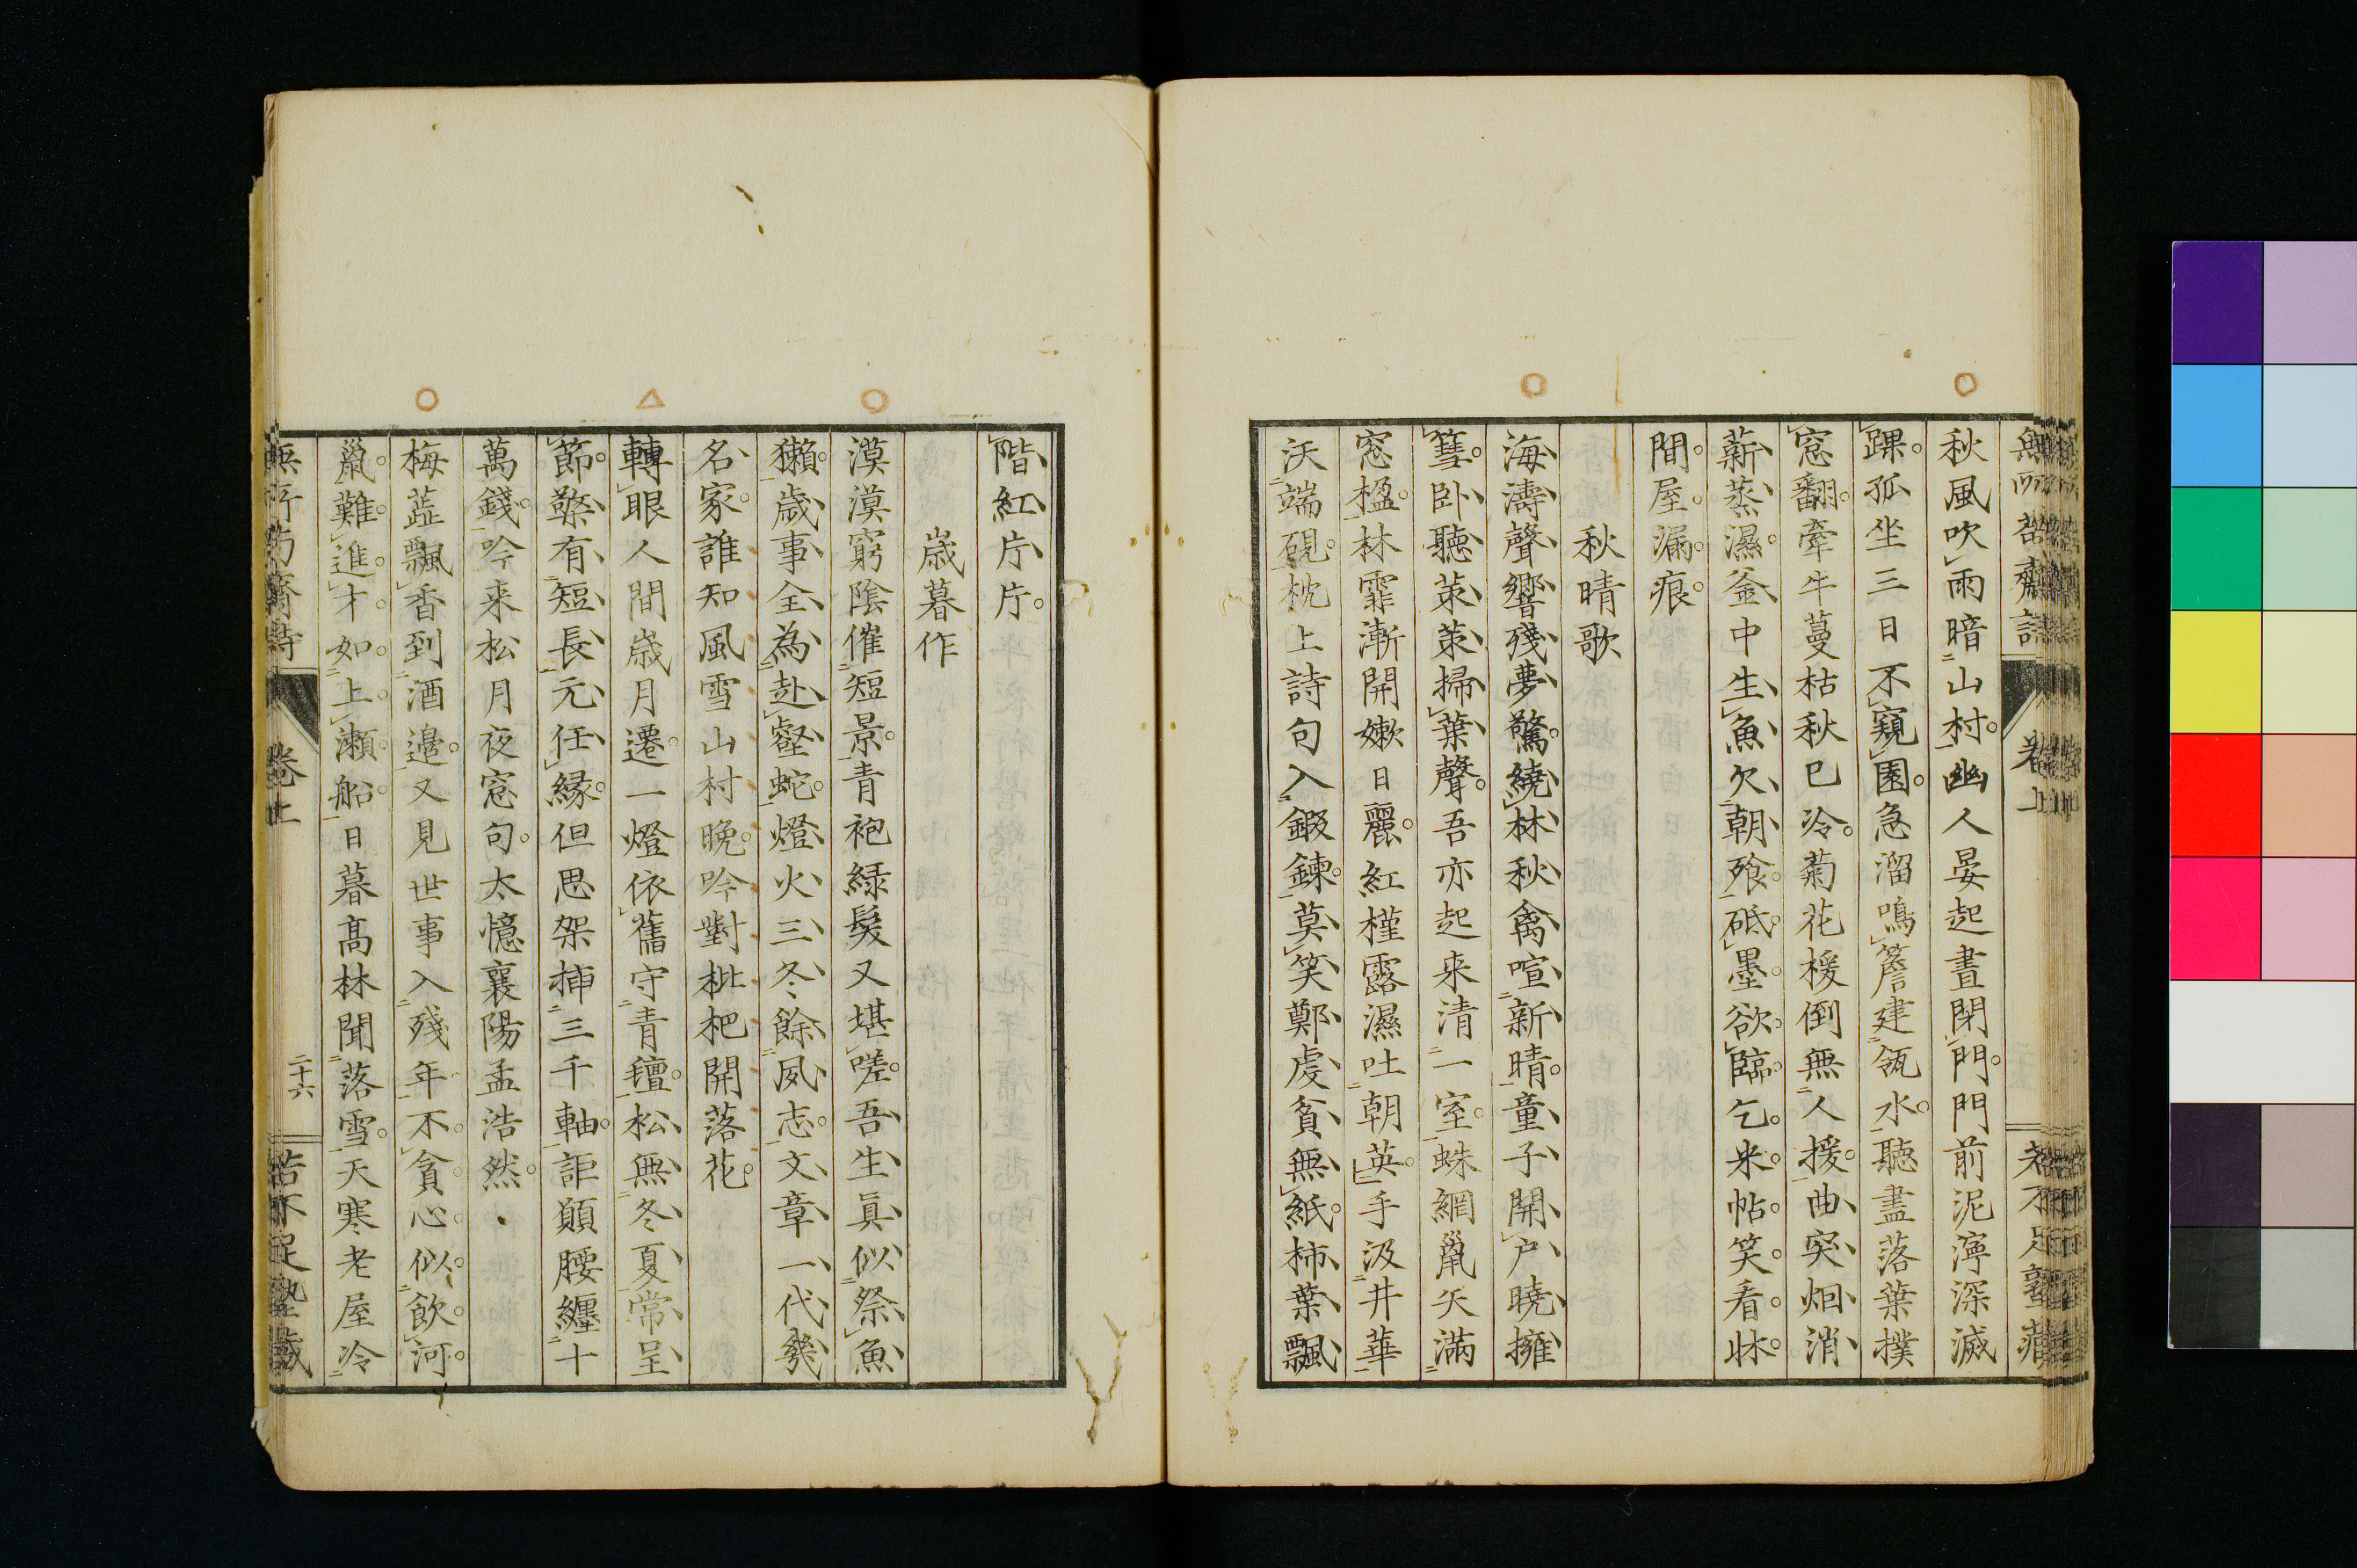 秋風吹雨暗山村幽人晏起晝閉門門前泥濘深滅
踝孤坐三日不窺園急溜鳴簷建瓴水聽盡落葉撲
窓翻牽牛蔓枯秋已冷菊花援倒無人援曲突烟消
薪蒸濕釜中生魚欠朝飱砥墨欲臨乞米帖笑看牀
間屋漏痕
秋晴歌
海濤聲響殘夢驚繞林秋禽喧新晴童子開戸曉擁
篲卧聽策策掃葉聲吾亦起来清一室蛛網鼠矢滿
窓楹林霏漸開嫰日麗紅槿露濕吐朝英手汲井華
沃端硯枕上詩句入鍜鍊莫笑鄭虔貧無紙柿葉飄
階紅片片
歳暮作
漠漠窮陰催短景青袍緑髮又堪嗟吾生眞似祭魚
獺歳事全為赴壑蛇燈火三冬餘夙志文章一代幾
名家誰知風雪山村晩吟對枇杷開落花
轉眼人間歳月遷一燈依舊守青氊松無冬夏常呈
節檠有短長元任縁但思架挿三千軸詎願腰纏十
萬錢吟来松月夜窓句太憶襄陽孟浩然
梅蕋飄香到酒邉又見世事入殘年不貪心似飲河
鼠難進才如上瀬船日暮髙林聞落雪天寒老屋冷
卷上
二十六